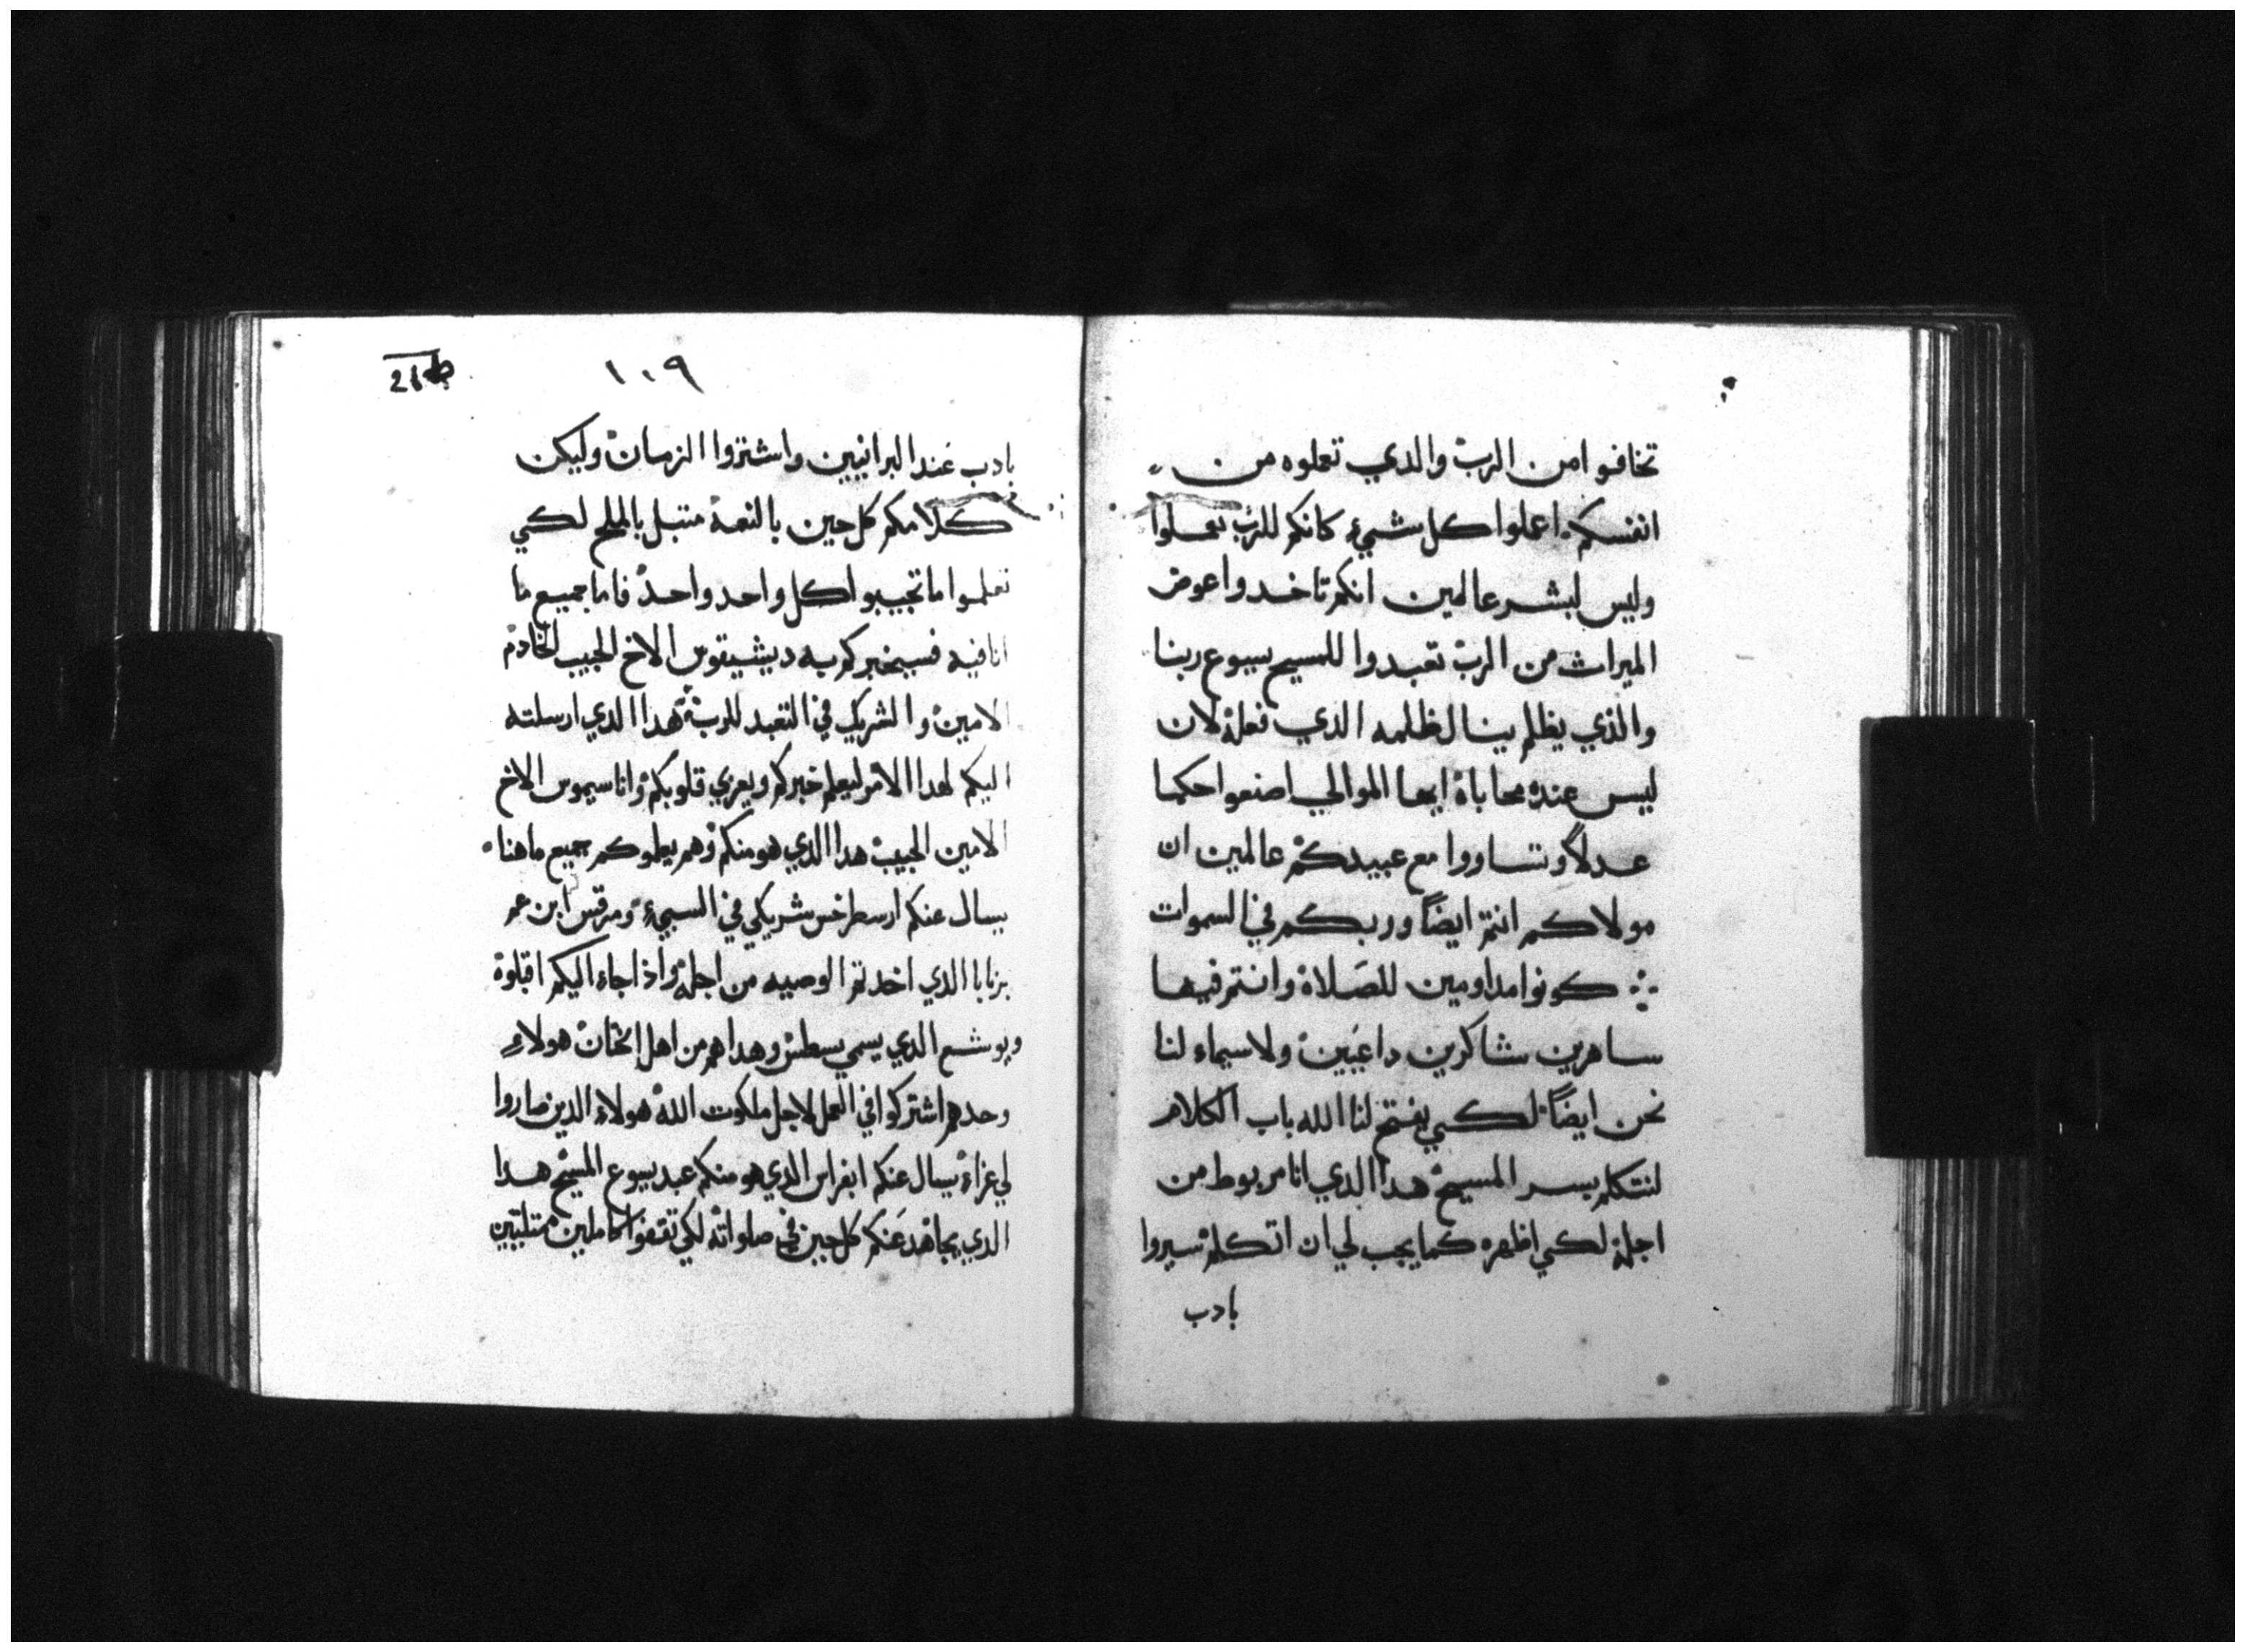 تخافوا من الرب والدي تعملوه من
انفسكم اعملوا كل شيء كانكم للرب تعملوا
وليس لبشر عالمين انكم تاخدوا عوض
الميراث من الرب تعبدوا للمسيح يسوع ربنا
والذي يظلم ينال ظلمه الدي فعلة لان
ليس عنده محاباة ايها الموالي اصنعوا حكما
عدلاً وتتساووا مع عبيدكم عالمين ان
مولاكم انتم ايضاً وربكم في السموات
كونوا مداومين للصلاة وانتم فيها
ساهرين شاكرين داعيين ولاسيماء لنا
نحن ايضاً لكي يفتح لنا الله باب الكلام
لنتكلم بسر المسيح هدا الدي انا مربوط من
اجلة لكي اظهره كما يجب لي ان اتكلم سيروا
بادب
١٠٩
بادب عند البرانيين واشتروا الزمان وليكن
كلامكم كل حين بالنعمة متبل بالملح لكي
تعلموا ما تجيبوا كل واحد واحد فاما جميع ما
انا فيه فسيخبركم به ديشيقوس الاخ الحبيب الخادم
الامين والشريك في التعبد للرب هدا الدي ارسلته
اليكم لهدا الامر ليعلم خبركم ويعزي قلوبكم واناسيموس الاخ
الامين الحبيب هدا الدي هو منكم وهم يعلموكم جميع ما هنا
يسال عنكم ارسطرخس شريكي في السبيء ومرقس ابن عم
برنابا الدي اخدتم الوصيه من اجلة واذا جاء اليكم اقبلوة
ويوشع الدي يسمي يسطس وهدا هم من اهل الختان هولاء
وحدهم اشتركوا في العمل لاجل ملكوت الله هولاء الدين صاروا
لي عزاء يسال عنكم ابفراس الدي هو منكم عبد يسوع المسيح هدا
الدي يجاهد عنكم كل حين في صلواته لكي تقفوا كاملين ممتلئين